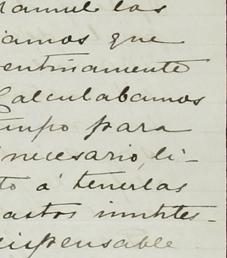 Manuel las
amos que
entinamente
Calculabamos
empo para
necesario, li-
to á tenerlas
astos inutiles-
dispensable